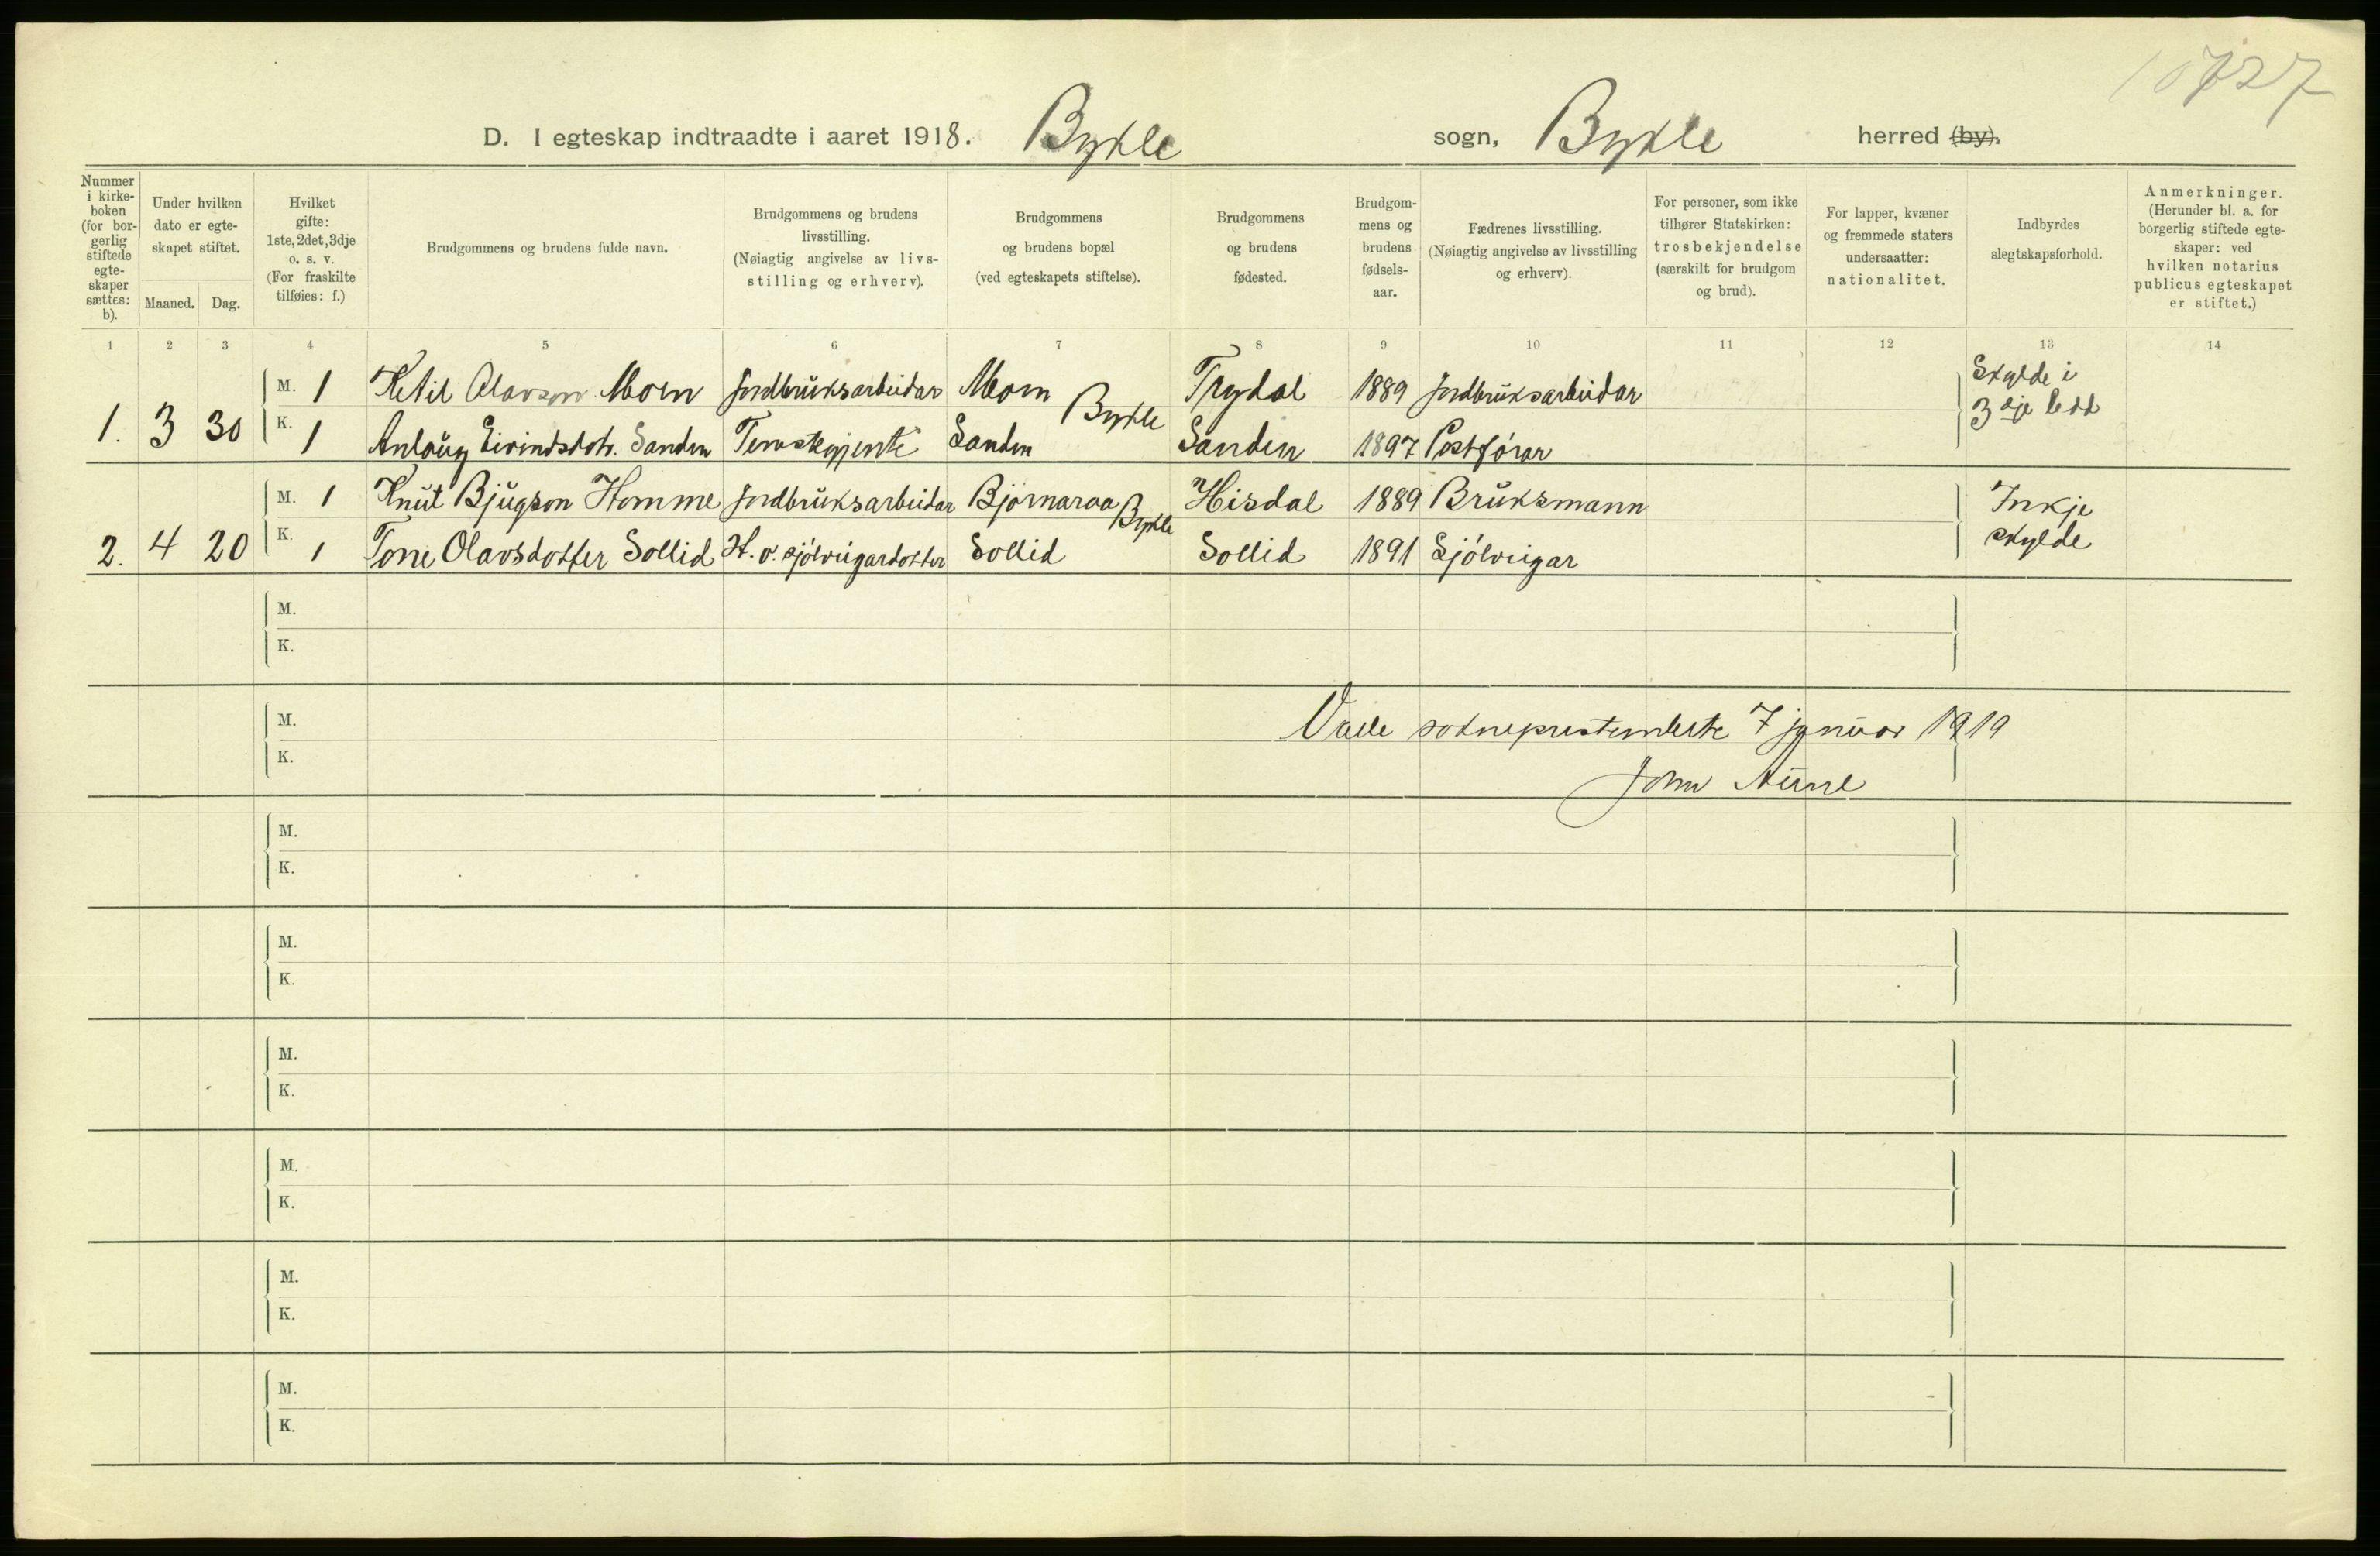 D. I egteskap indtraadte i aaret 1918. Bykle sogn, Bykle herred (by).
Nummer i kirke-boken (for bor-gerlig stiftede egte-skaper sættes: b).
Under hvilken dato er egte-skapet stiftet.
Maaned. Dag.
Hvilket gifte: 1ste, 2det, 3dje o. s. v. (For fraskilte tilføies: f.)
Brudgommens og brudens fulde navn.
Brudgommens og brudens livsstilling. (Nøiagtig angivelse av livs-stilling og erhverv).
Brudgommens og brudens bopæl (ved egteskapets stiftelse).
Brudgommens og brudens fødested.
Brudgom-mens og brudens fødsels-aar.
Fædrenes livsstilling. (Nøiagtig angivelse av livsstilling og erhverv).
For personer, som ikke tilhører Statskirken: trosbekjendelse (særskilt for brudgom og brud).
For lapper, kvæner og fremmede staters undersaatter: nationalitet.
Indbyrdes slegtskapsforhold.
Anmerkninger. (Herunder bl. a. for borgerlig stiftede egte-skaper: ved hvilken notarius publicus egteskapet er stiftet.)
1 2 3 4 5 6 7 8 9 10 11 12 13 14
M. 1 Ketil Olavson Moen Jordbruksarbeidar Moen Trydal 1889 Jordbruksarbeidar Skylde i
1. 3 30 K. 1 Anlaug Eivindsdotr. Sanden Tenestegjente Sanden Bykle Sanden 1897 Postførar 3dje ledd
M. 1 Knut Bjugson Homme Jordbruksarbeidar Bjørnaraa Bykle Hisdal 1889 Bruksmann Inkje
2. 4 20 K. 1 Tone Olavsdotter Sollid H. o. sjølveigardotter Sollid Sollid 1891 Sjølveigar skylde
M.
K.
M. Valle sokneprestembete 7 januar 1919
K. John Aune
M.
K.
M.
K.
M.
K.
M.
K.
M.
K.
M.
K.